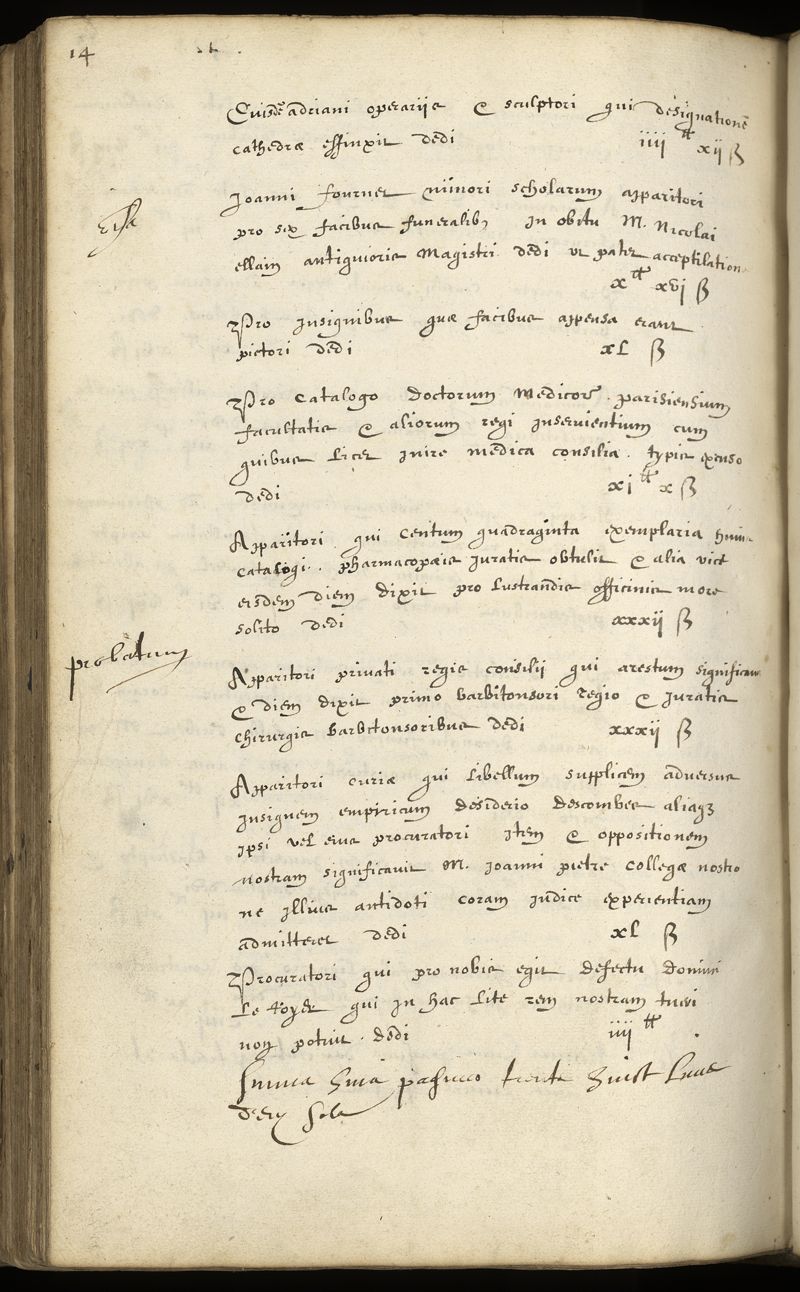 14
Eiusdē adriani operariis & sculptori qui designationē
cathedræ effinxit dedi iiii ₶ xij ß
Joanni fournet minori scholarum apparitori
pro sex facibus funeralibꝫ in obitu M. Nicolai
ellain antiquioris Magistri dedi ut patet acceptilation
x ₶ xvj ß
Pro insignibus quæ facibus appensa erant
pictori dedi xl ß
Pro Catalogo doctorum Medicorū parisiensium
facultatis & aliorum regi inservientium cum
quibus licet inire medica consilia . typis excuso
dedi xj ₶ x ß
Apparitori qui Centum quadraginta exemplaria huius
Catalogi . pharmacopæis juratis obtulit & alia vice
eisdem diem dixit pro lustrandis officinis more
solito dedi xxxij ß
probatum
Apparitori privati regis consilij qui arestum significavit
& diem dixit primo barbitonsori regio & juratis
chirurgis barbitonsoribus dedi xxxij ß
Apparitori curiæ qui libellum supplicem adversus
insignem empiricum desiderio descombes aliasqꝫ
ipsi vel eius procuratori item & oppositionem
nostram significavit M. Joanni pietre collegæ nostro
ne illius antidoti coram judice experientiam
admitteret dedi xl ß
Procuratori qui pro nobis egit defectu domini
le foyer qui in hac lite rem nostram tueri
non potuit . dedi iiij ₶
Summa huius paginæ trente huict livres
dix sols